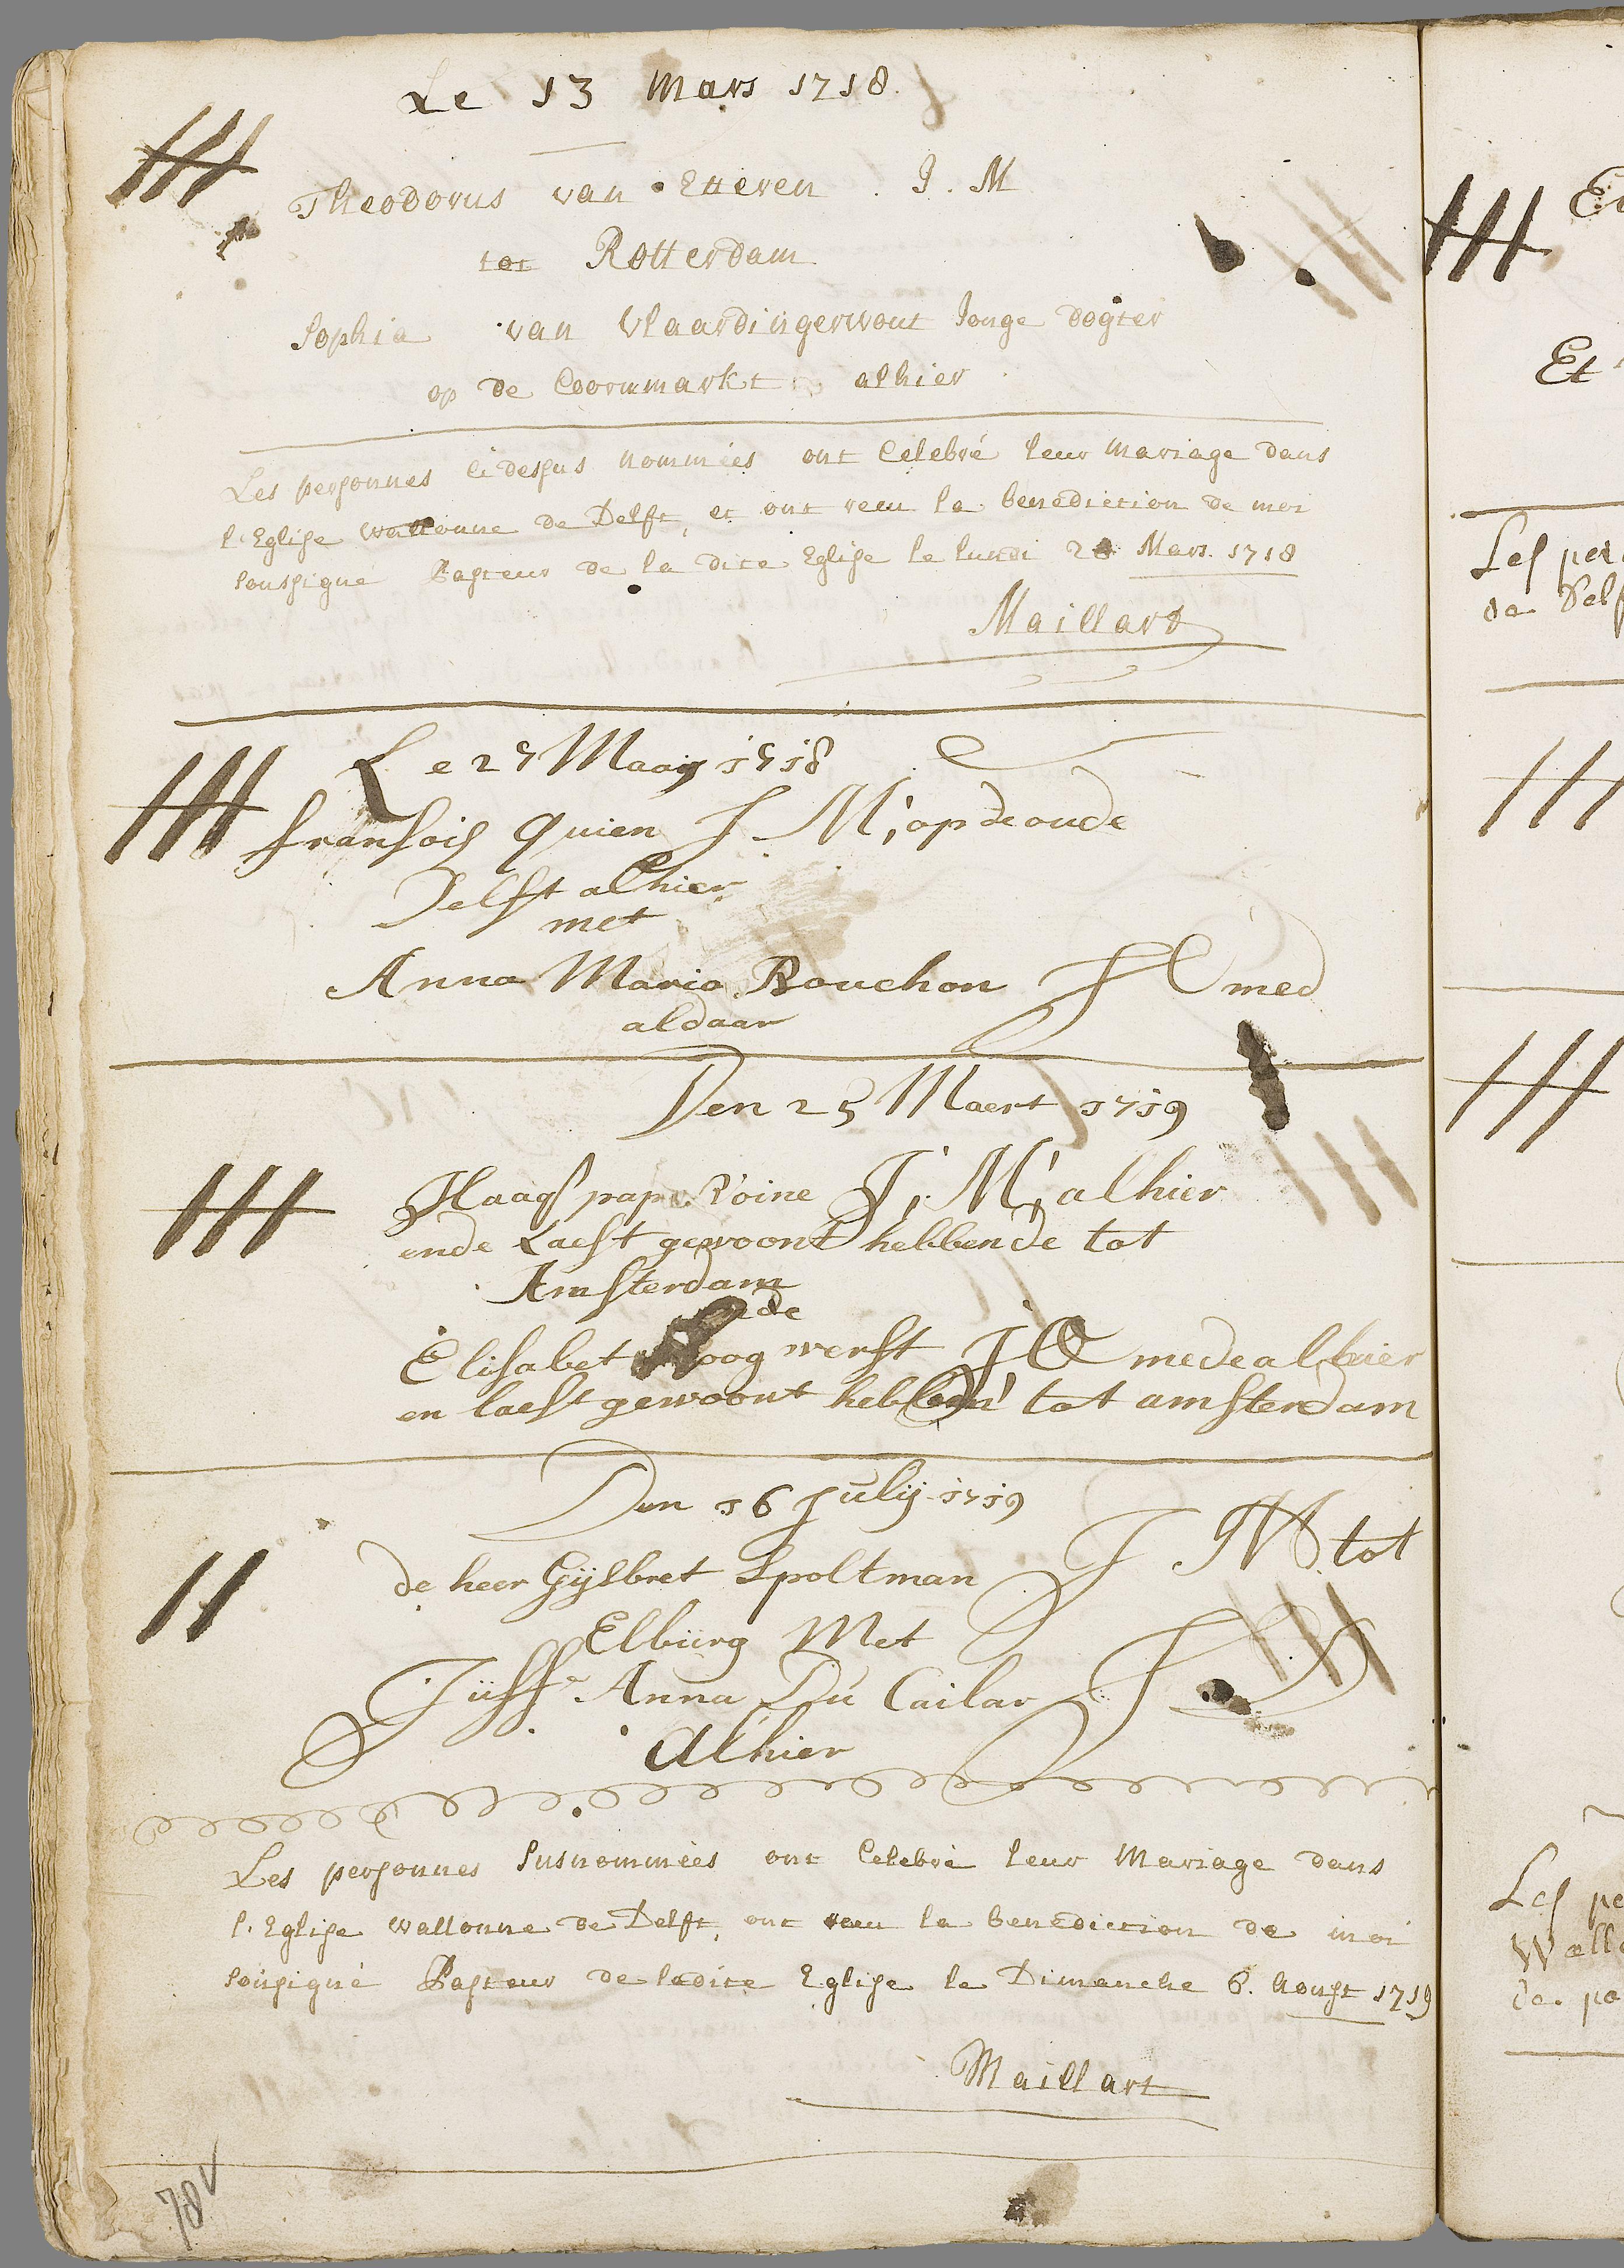 Le 13 Mars 1718.
Theodorus van Etteren . J. M
tot Rotterdam
Sophia van Vlaardingerwout Jonge dogter
op de Coornmarkt alhier
Les personnes ci dessus nommées ont Celebré leur mariage dans
l'Eglise Wallonne de Delft, et ont receu la benediction de moi
soussigné Pasteur de la dite Eglise le lundi 28 Mars 1718
Maillard
Le 27 Maay 1718
fransois quien J M, op de oude
Delft alhier
met
Anna Maria Bouchon J D med
aldaar
Den 25 Maert 1719
J. M, alhier
ende Laest gewoont hebbende tot
Amsterdam
de
Elisabet Hoog werft J D mede alhier
en laest gewoont hebben tot amsterdam
Den 16 Julij 1719
de heer Gijsbret Spoltman J M tot
Elburg Met
Juffr Anna Du Cailar J D
Alhier
Les personnes susnommées ont Celebré leur Mariage dans
l'Eglise Wallonne de Delft, ont receu la benediction de moi
sousigné Pasteur de ladite Eglise le Dimanche 6. Aoust 1719
Maillart
78v
Et
Les per
de Delf
Les pe
Wallo